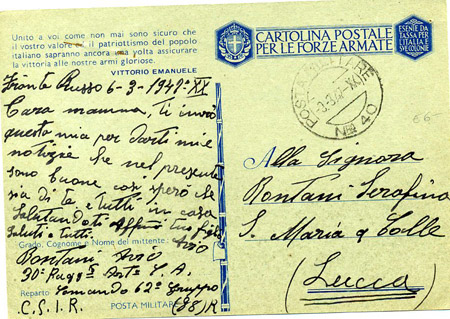 Unito a voi come non mai sono sicuro che
il vostro valore ed il patriottismo del popolo
italiano sapranno ancora una volta assicurare
la vittoria alle nostre armi gloriose.
VITTORIO EMANUELE
CARTOLINA POSTALE
PER LE FORZE ARMATE
ESENTE DA
TASSA PER
L'ITALIA E
SVE COLONIE
POSTA MILITARE
Nº 40
Fronte Russo 6-3-1942=XX
Cara mamma, ti invio
questa mia per darti mie
notizie che nel presente
sono buone così spero che
sia di te e tutti in casa
Salutandoti Affmo tuo figlio
Saluti a tutti.
Grado, Cognome e Nome del mittente:
Bontani
30º Ragg
Reparto Comando 62º Gruppo
C.S.I.R. POSTA MILITARE (88) R
Alla Signora
Bontani Serafina
S. Maria a Colle
(Lucca)
€6-